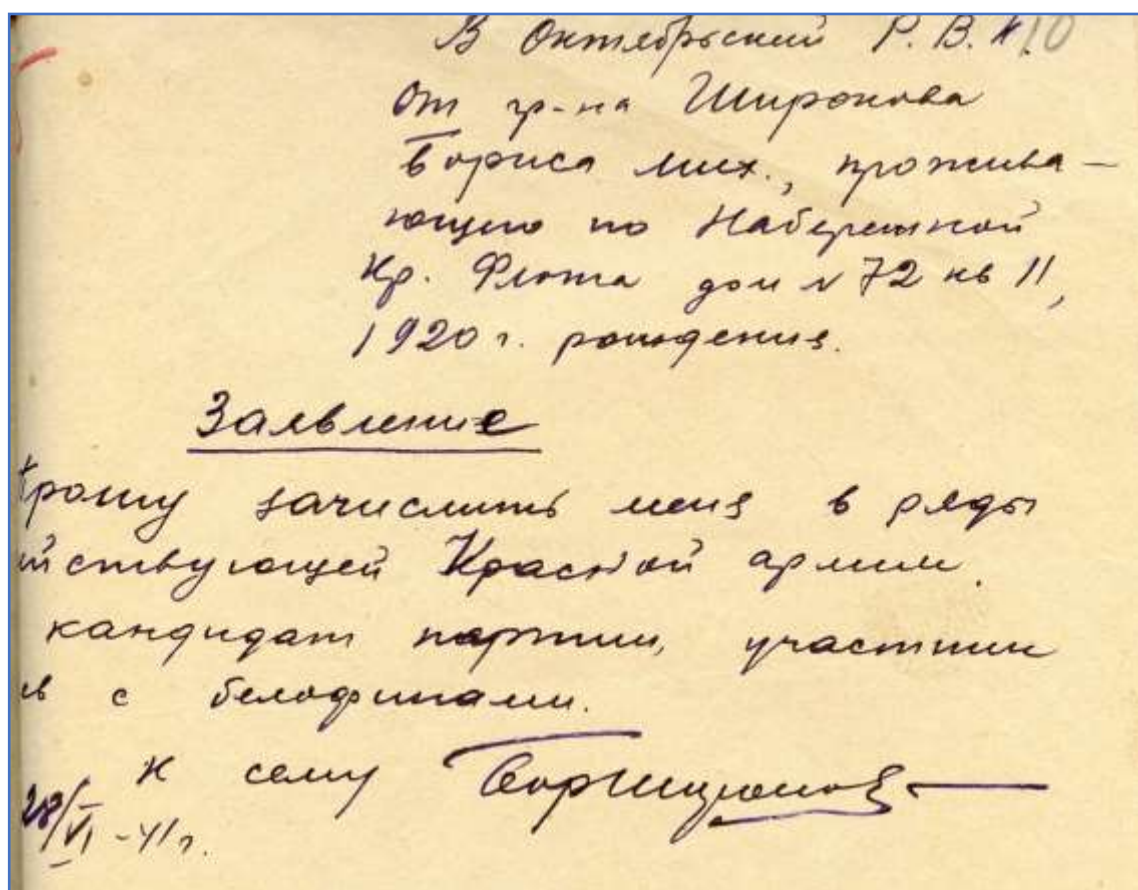 В Октябрьский Р. В. К. 10
От гр-на Широкова
Бориса Мих., прожива-
ющего по Набережной
Кр. Флота дом № 72 кв 11,
1920 г. рождения.
Заявление
Прошу зачислить меня в ряды
йствующей Красной армии.
кандидат партии, участник
ев с белофинами.
К сему БорШироков
28/VI - 41 г.